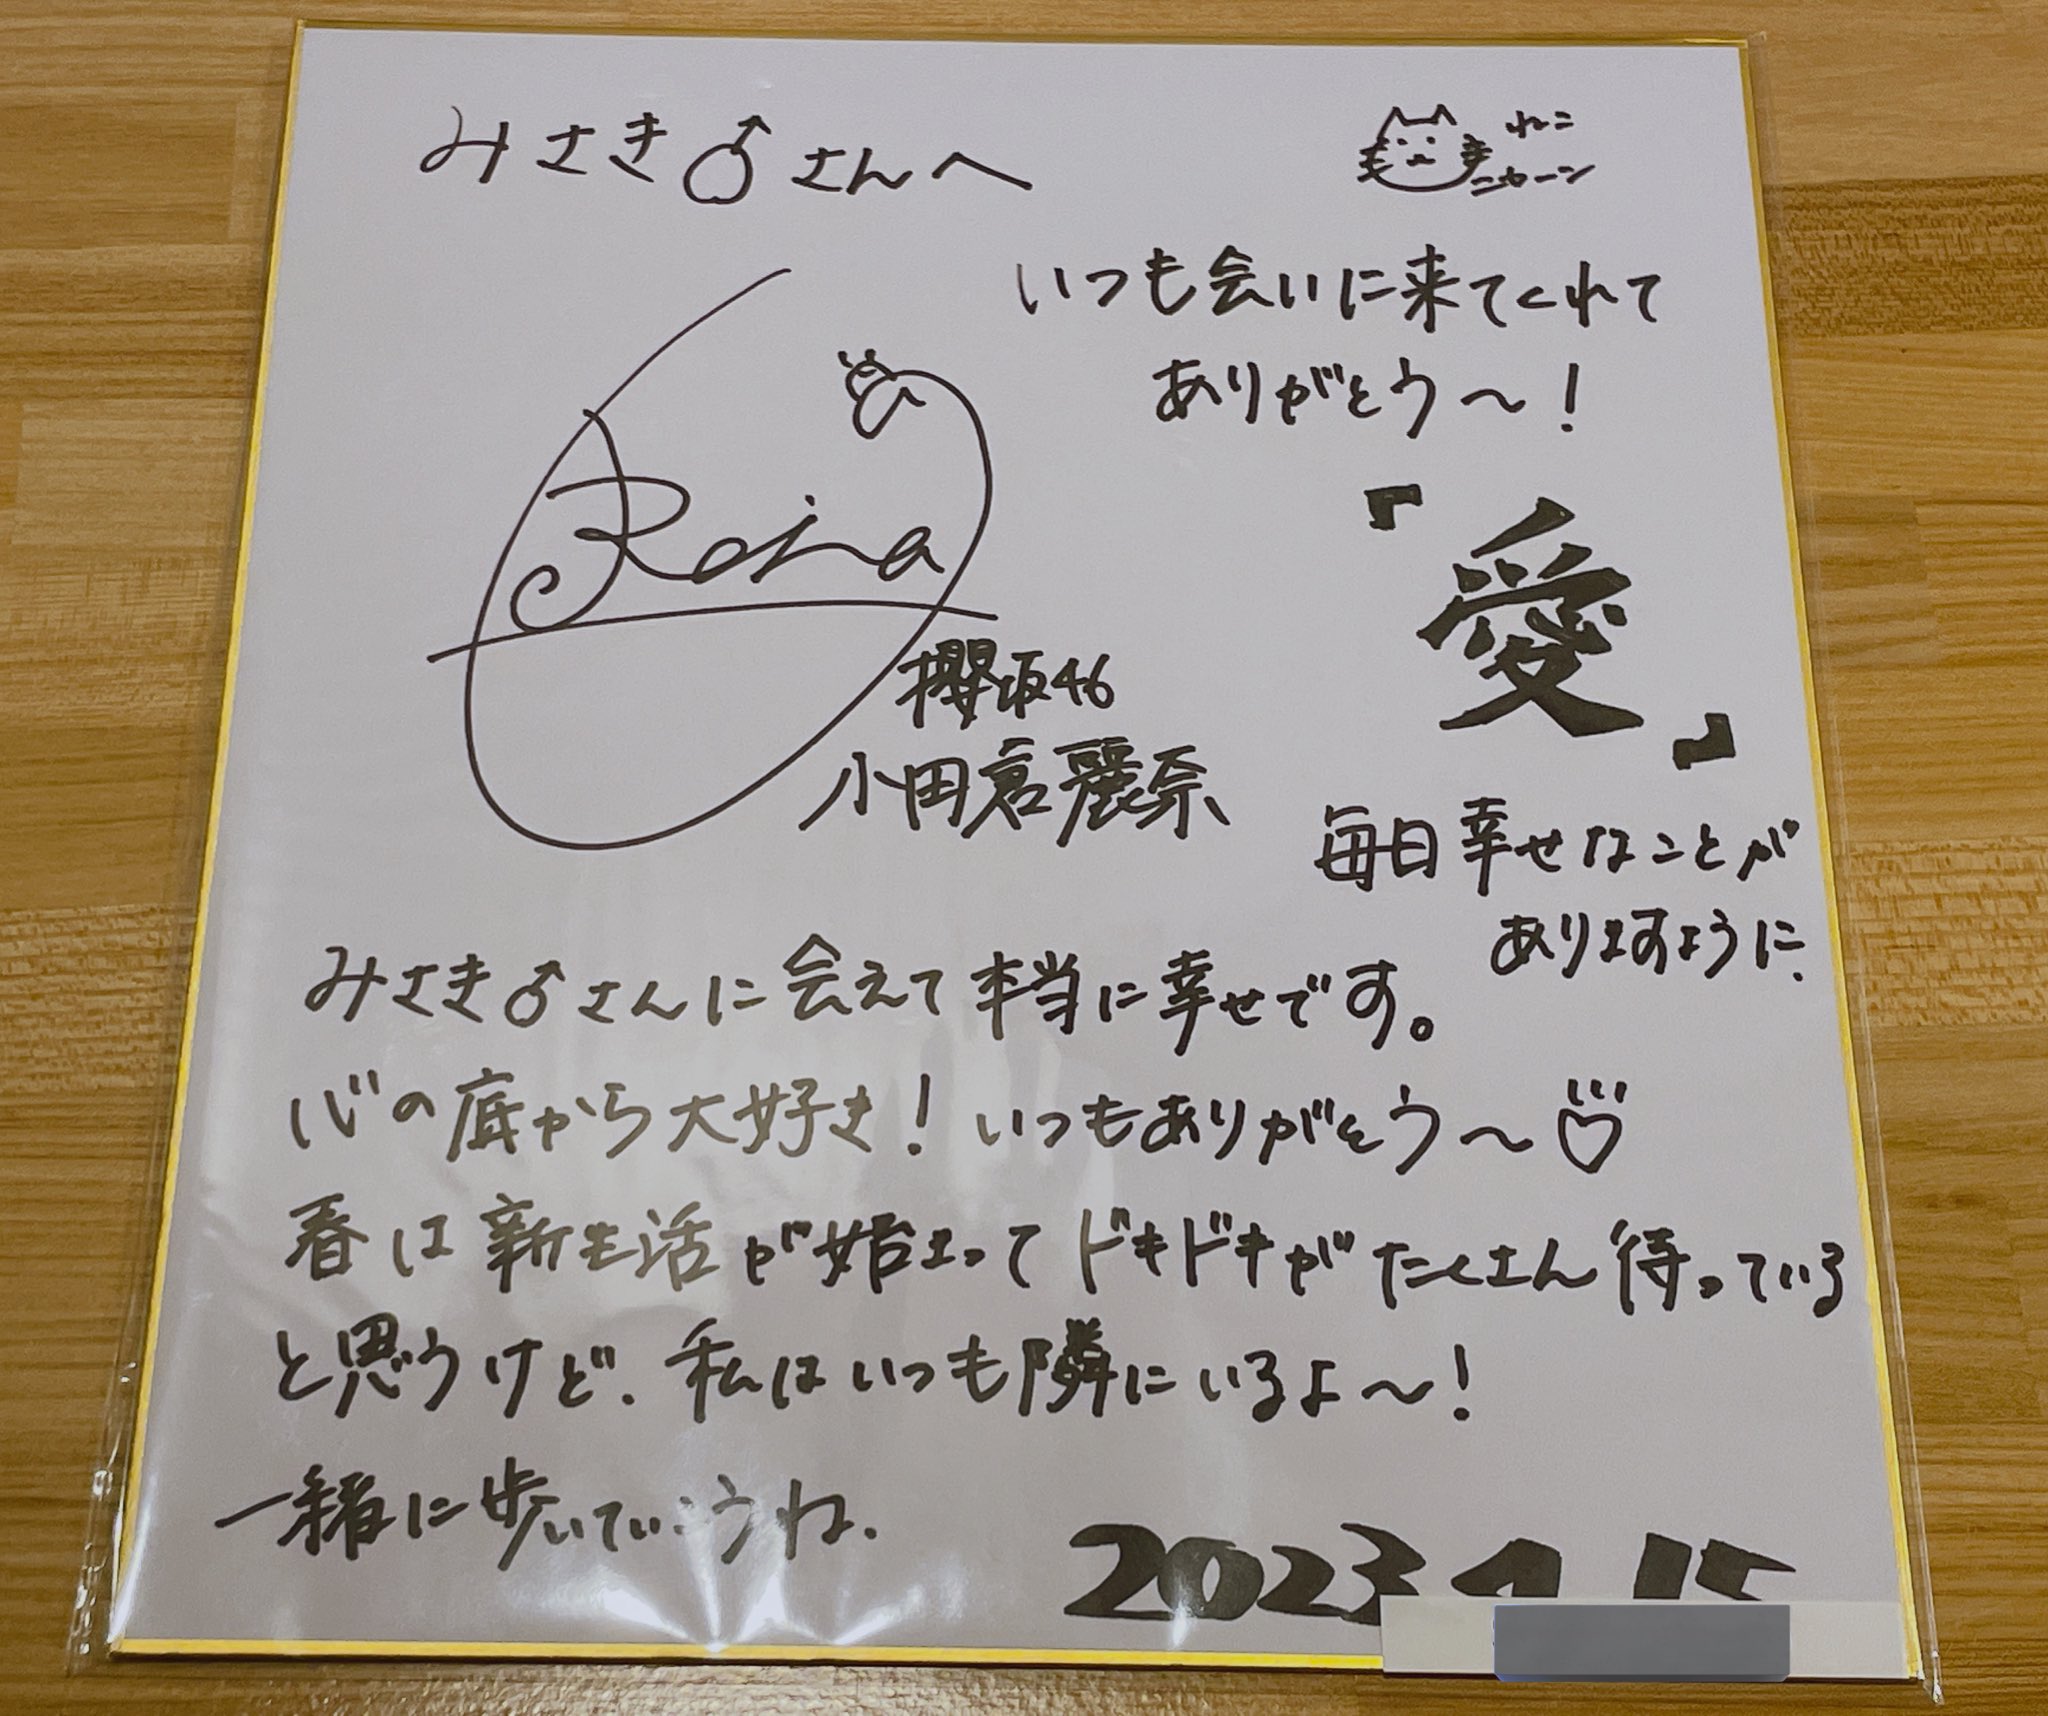 みさき♂さんへ
ねこ
ニャーン
いつも会いに来てくれて
ありがとう〜！
Reina
『愛』
櫻坂46
小田倉麗奈
毎日幸せなことが
ありますように、
みさき♂さんに会えて本当に幸せです。
心の底から大好き！いつもありがとう〜♡
春は新生活が始まってドキドキがたくさん待っている
と思うけど、私はいつも隣にいるよ〜！
一緒に歩いていこうね、
2023.4.15